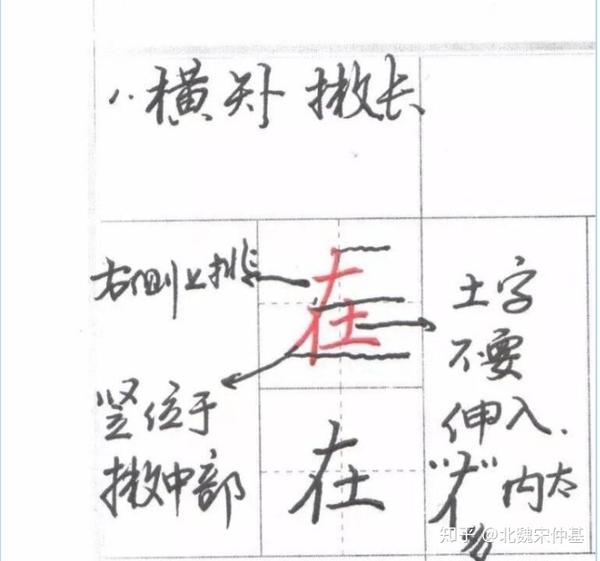 横短 撇长
右侧上挑
在
竖位于
撇中部
在
土字
不要
伸入.
内太
多
知乎 @北魏宋仲基